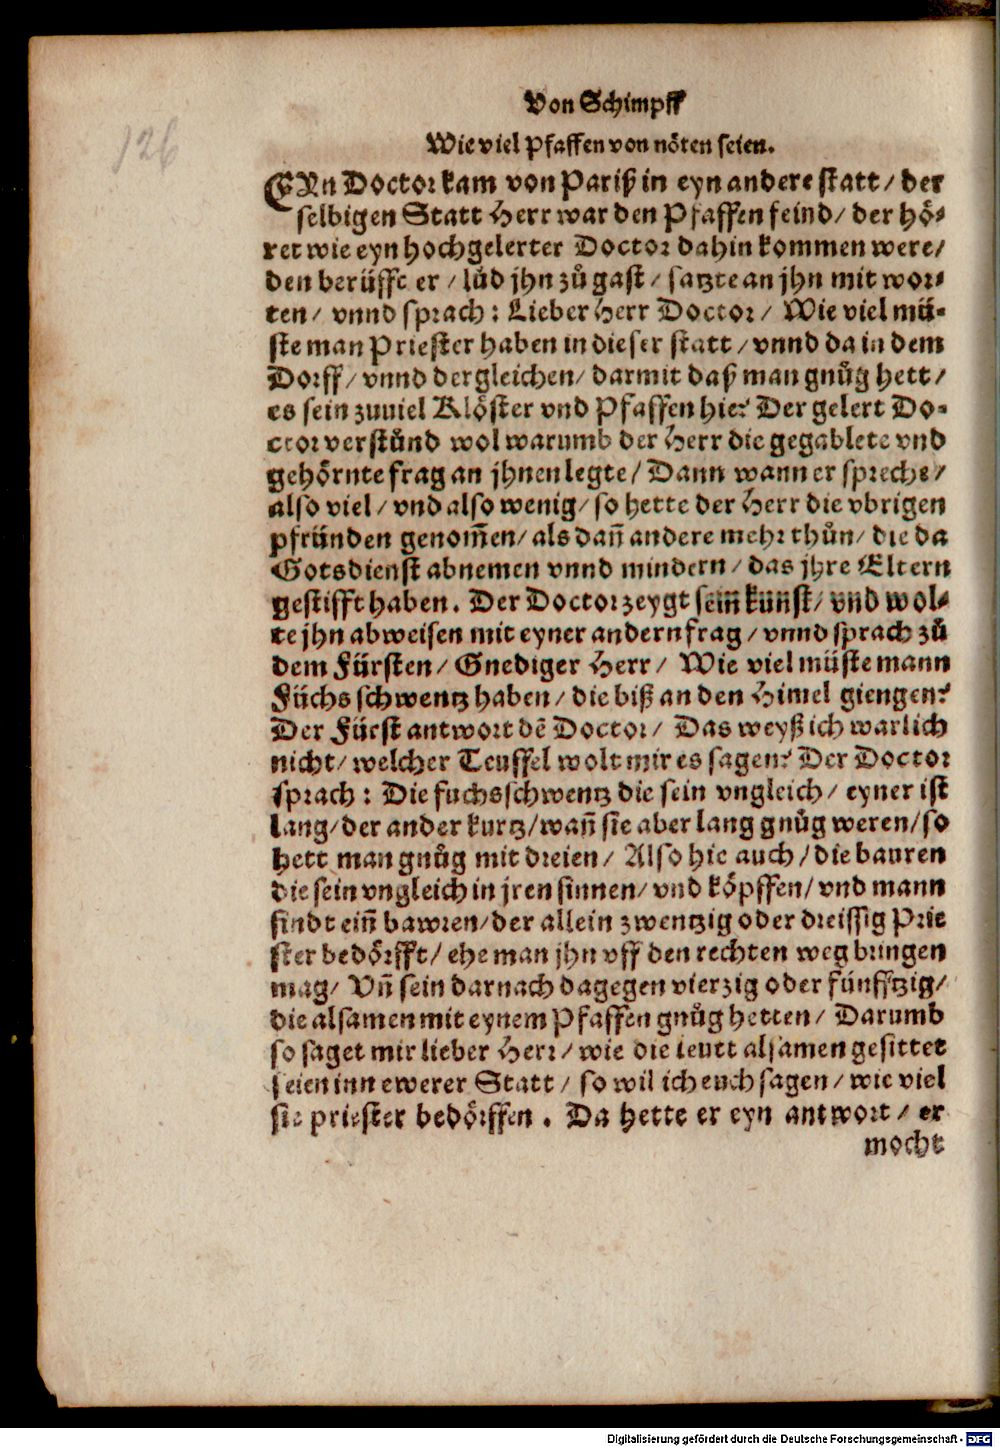 126
Von Schimpff
Wie viel Pfaffen von nöten seien.
EYn Doctor kam von Pariß in eyn andere statt/ der
selbigen Statt Herr war den Pfaffen feind/ der hö-
ret wie eyn hochgelerter Doctor dahin kommen were/
den berüfft er / lůd jhn zů gast / satzte an jhn mit wor-
ten/ vnnd sprach: Lieber Herr Doctor/ Wie viel mü-
ste man Priester haben in dieser statt / vnnd da in dem
Dorff/ vnnd dergleichen/ darmit daß man gnůg hett/
es sein zuuiel Klöster vnd Pfaffen hie? Der gelert Do-
ctor verstůnd wol warumb der Herr die gegablete vnd
gehörnte frag an jhnen legte/ Dann wann er spreche/
also viel/ vnd also wenig/ so hette der Herr die vbrigen
pfründen genom̃en/ als dañ andere mehr thůn/ die da
Gotsdienst abnemen vnnd mindern/ das jhre Eltern
gestifft haben. Der Doctor zeygt sein̄ kunst/ vnd wol-
te jhn abweisen mit eyner andern frag/ vnnd sprach zů
dem Fürsten/ Gnediger Herr/ Wie viel müste mann
Füchs schwentz haben/ die biß an den Himel giengen?
Der Fürst antwort dē Doctor/ Das weyß ich warlich
nicht/ welcher Teuffel wolt mir es sagen? Der Doctor
sprach: Die fuchsschwentz die sein vngleich/ eyner ist
lang/ der ander kurtz/ wañ sie aber lang gnůg weren/ so
hett man gnůg mit dreien/ Also hie auch/ die bauren
die sein vngleich in jren sinnen/ vnd köpffen/ vnd mann
findt ein̄ bawren/ der allein zwentzig oder dreissig Prie
ster bedörfft/ ehe man jhn vff den rechten weg bringen
mag/ Vn̄ sein darnach dagegen vierzig oder fünfftzig/
die alsamen mit eynem Pfaffen gnůg hetten/ Darumb
so saget mir lieber Herr/ wie die leutt alsamen gesittet
seien inn ewerer Statt / so wil ich euch sagen/ wie viel
sie priester bedörffen. Da hette er eyn antwort/ er
mocht
Digitalisierung gefördert durch die Deutsche Forschungsgemeinschaft - DFG